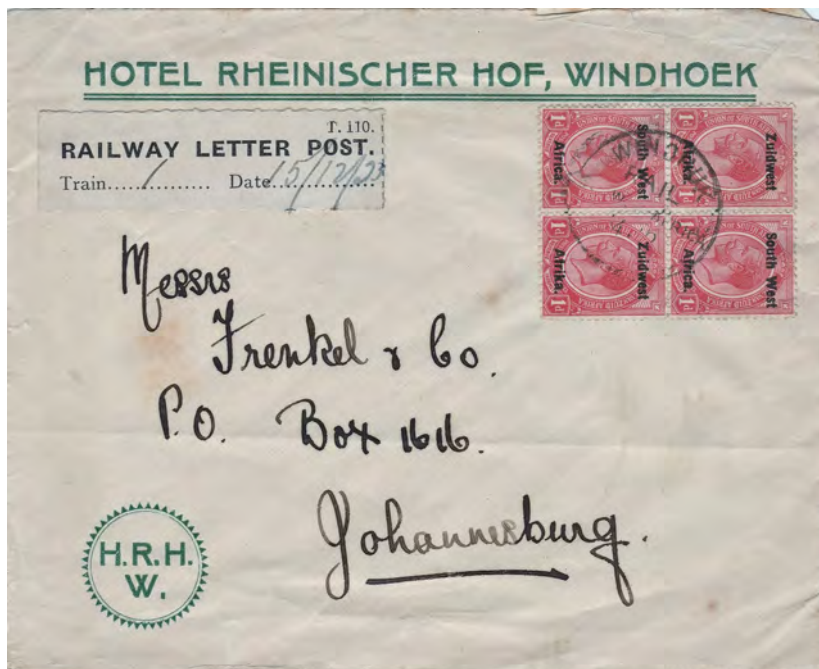 HOTEL RHEINISCHER HOF, WINDHOEK
T. 110.
RAILWAY LETTER POST.
Train.....1......... Date 15/12/23
1d South West Africa. 1d
1d Zuidwest Afrika. 1d
1d Zuidwest Afrika. 1d
1d South West Africa. 1d
WINDHUK
RAIL
Messrs
Frenkel & Co.
P.O. Box 1616.
Johannesburg.
H.R.H.
W.